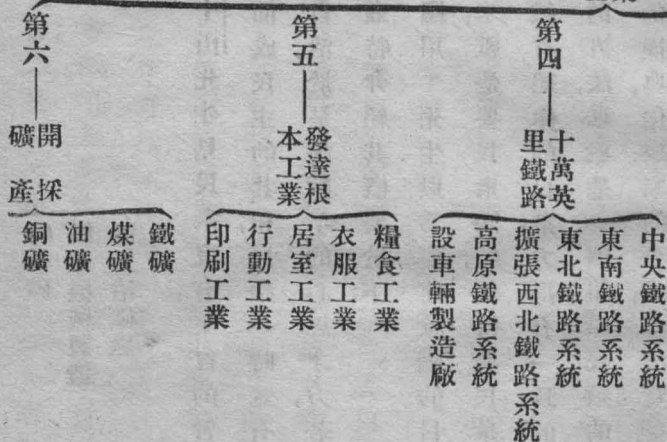 第四
十萬英
里鐵路
中央鐵路系統
東南鐵路系統
東北鐵路系統
擴張西北鐵路系統
高原鐵路系統
設車輛製造廠
第五
發達根
本工業
糧食工業
衣服工業
居室工業
行動工業
印刷工業
第六
開採
礦產
鐵礦
煤礦
油礦
銅礦